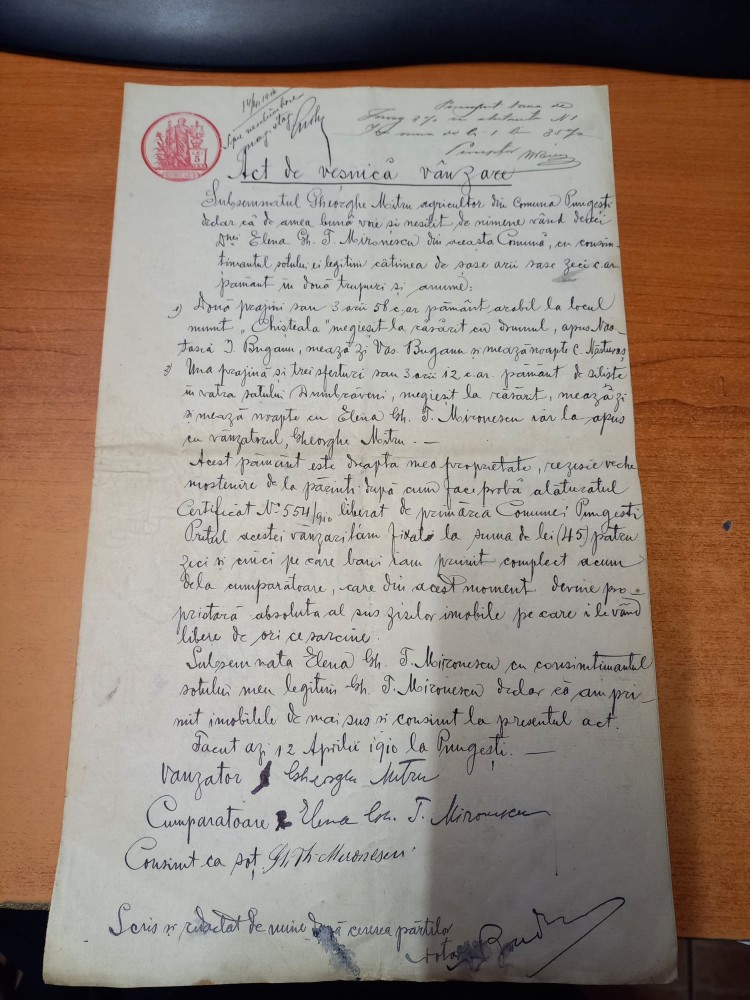 Perceput taxa de
Act de vesnică vânzare
Subsemnatul Gheorghe Mitru agricultor din Comuna Pungești
declar că de amea bună voie si nesilit de nimene vând de veci
Dnei Elena Gh. T. Mironescu din aceasta Comună, cu consim-
timantul sotului ei legitim câtimea de sase arii sase zeci c.ar.
pământ în două trupuri și anume:
1) Două prajini sau 3 arii 58 c.ar pământ arabil la locul
numit „Chișteala" megiesit la răsărit cu drumul, apus Nas-
tasia I. Buganu, mează zi Vas. Buganu si mează noapte C. Năsturaș
2) Una prajină si trei sferturi sau 3 arii 12 c.ar. pământ de siliste
in vatra satului Dumbrăveni, megiesit la răsărit, meazăzi
și mează noapte cu Elena Gh. T. Mironescu iar la apus
cu vânzatorul, Gheorghe Mitru. —
Acest pământ este dreapta mea proprietate, rezesie veche
mostenire de la părinti după cum face probă alăturatul
Certificat No 554/910 liberat de primăria Comunei Pungesti
Prețul acestei vânzari lam fixat la suma de lei (45) patru
zeci si cinci pe care bani iam primit complect acum
dela cumparătoare, care din acest moment devine pro-
prietară absoluta al sus ziselor imobile pe care i le vând
libere de ori ce sarcine.
Subsemnata Elena Gh. T. Mironescu cu consimtimantul
sotului meu legitim Gh. T. Mironescu declar că am pri-
mit imobilele de mai sus si consimt la presentul act.
Facut azi 12 Aprilie 1910 la Pungești. —
Vanzator Gheorghe Mitru
Cumparatoare Elena Gh. T. Mironescu
Consimt ca soț, Gh. T. Mironescu
Scris și redactat de mine după cererea părtilor